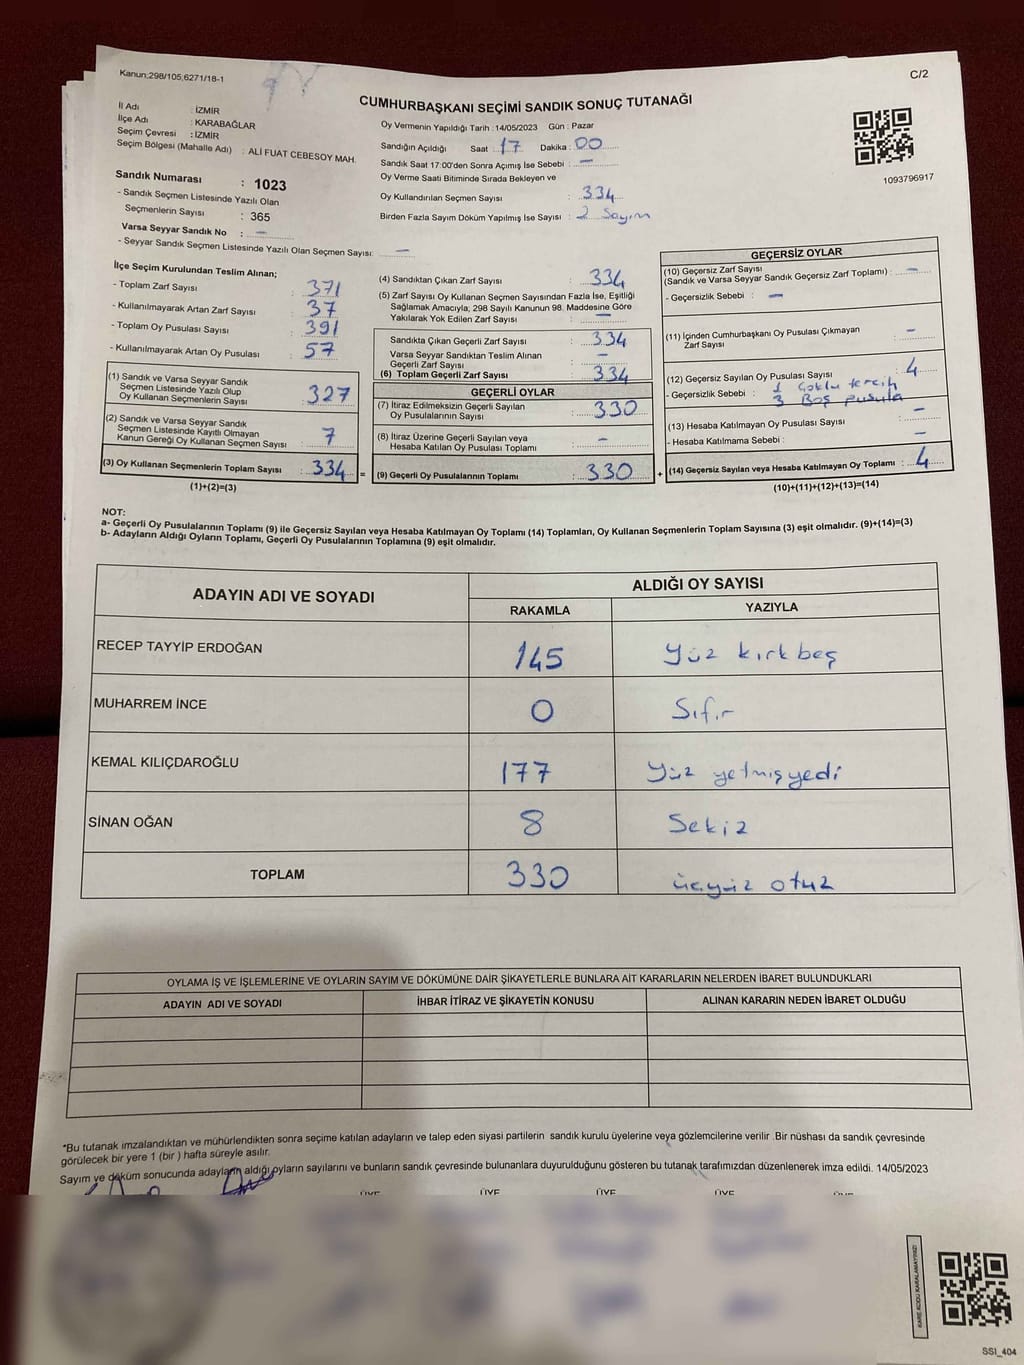 Kanun;298/105;6271/18-1
C/2
CUMHURBAŞKANI SEÇİMİ SANDIK SONUÇ TUTANAĞI
İl Adı : İZMİR
İlçe Adı : KARABAĞLAR
Seçim Çevresi : İZMİR
Seçim Bölgesi (Mahalle Adı) : ALİ FUAT CEBESOY MAH.
Sandık Numarası : 1023
- Sandık Seçmen Listesinde Yazılı Olan
Seçmenlerin Sayısı : 365
Varsa Seyyar Sandık No : —
- Seyyar Sandık Seçmen Listesinde Yazılı Olan Seçmen Sayısı: —
Oy Vermenin Yapıldığı Tarih : 14/05/2023 Gün : Pazar
Sandığın Açıldığı Saat : 17 Dakika : 00
Sandık Saat 17:00'den Sonra Açımış İse Sebebi : —
Oy Verme Saati Bitiminde Sırada Bekleyen ve
Oy Kullandırılan Seçmen Sayısı : 334
Birden Fazla Sayım Döküm Yapılmış İse Sayısı : 2 Sayım
1093796917
İlçe Seçim Kurulundan Teslim Alınan;
- Toplam Zarf Sayısı : 371
- Kullanılmayarak Artan Zarf Sayısı : 37
- Toplam Oy Pusulası Sayısı : 391
- Kullanılmayarak Artan Oy Pusulası : 57
(1) Sandık ve Varsa Seyyar Sandık
Seçmen Listesinde Yazılı Olup
Oy Kullanan Seçmenlerin Sayısı : 327
(2) Sandık ve Varsa Seyyar Sandık
Seçmen Listesinde Kayıtlı Olmayan
Kanun Gereği Oy Kullanan Seçmen Sayısı : 7
(3) Oy Kullanan Seçmenlerin Toplam Sayısı : 334 =
(1)+(2)=(3)
(4) Sandıktan Çıkan Zarf Sayısı : 334
(5) Zarf Sayısı Oy Kullanan Seçmen Sayısından Fazla İse, Eşitliği
Sağlamak Amacıyla; 298 Sayılı Kanunun 98. Maddesine Göre
Yakılarak Yok Edilen Zarf Sayısı : —
Sandıkta Çıkan Geçerli Zarf Sayısı : 334
Varsa Seyyar Sandıktan Teslim Alınan
Geçerli Zarf Sayısı : —
(6) Toplam Geçerli Zarf Sayısı : 334
GEÇERLİ OYLAR
(7) İtiraz Edilmeksizin Geçerli Sayılan
Oy Pusulalarının Sayısı : 330
(8) İtiraz Üzerine Geçerli Sayılan veya
Hesaba Katılan Oy Pusulası Toplamı : —
(9) Geçerli Oy Pusulalarının Toplamı : 330 +
GEÇERSİZ OYLAR
(10) Geçersiz Zarf Sayısı
(Sandık ve Varsa Seyyar Sandık Geçersiz Zarf Toplamı) : —
- Geçersizlik Sebebi : —
(11) İçinden Cumhurbaşkanı Oy Pusulası Çıkmayan
Zarf Sayısı : —
(12) Geçersiz Sayılan Oy Pusulası Sayısı : 4
- Geçersizlik Sebebi : 1 Çoklu tercih
3 Boş pusula
(13) Hesaba Katılmayan Oy Pusulası Sayısı : —
- Hesaba Katılmama Sebebi : —
(14) Geçersiz Sayılan veya Hesaba Katılmayan Oy Toplamı : 4
(10)+(11)+(12)+(13)=(14)
NOT:
a- Geçerli Oy Pusulalarının Toplamı (9) ile Geçersiz Sayılan veya Hesaba Katılmayan Oy Toplamı (14) Toplamları, Oy Kullanan Seçmenlerin Toplam Sayısına (3) eşit olmalıdır. (9)+(14)=(3)
b- Adayların Aldığı Oyların Toplamı, Geçerli Oy Pusulalarının Toplamına (9) eşit olmalıdır.
ADAYIN ADI VE SOYADI
ALDIĞI OY SAYISI
RAKAMLA YAZIYLA
RECEP TAYYİP ERDOĞAN 145 Yüz kırk beş
MUHARREM İNCE 0 Sıfır
KEMAL KILIÇDAROĞLU 177 Yüz yetmiş yedi
SİNAN OĞAN 8 Sekiz
TOPLAM 330 üçyüz otuz
OYLAMA İŞ VE İŞLEMLERİNE VE OYLARIN SAYIM VE DÖKÜMÜNE DAİR ŞİKAYETLERLE BUNLARA AİT KARARLARIN NELERDEN İBARET BULUNDUKLARI
ADAYIN ADI VE SOYADI İHBAR İTİRAZ VE ŞİKAYETİN KONUSU ALINAN KARARIN NEDEN İBARET OLDUĞU
*Bu tutanak imzalandıktan ve mühürlendikten sonra seçime katılan adayların ve talep eden siyasi partilerin sandık kurulu üyelerine veya gözlemcilerine verilir .Bir nüshası da sandık çevresinde
görülecek bir yere 1 (bir ) hafta süreyle asılır.
Sayım ve döküm sonucunda adayların aldığı oyların sayılarını ve bunların sandık çevresinde bulunanlara duyurulduğunu gösteren bu tutanak tarafımızdan düzenlenerek imza edildi. 14/05/2023
ÜYE ÜYE ÜYE ÜYE
KARE KODU KARALAMAYINIZ!
SSI_404